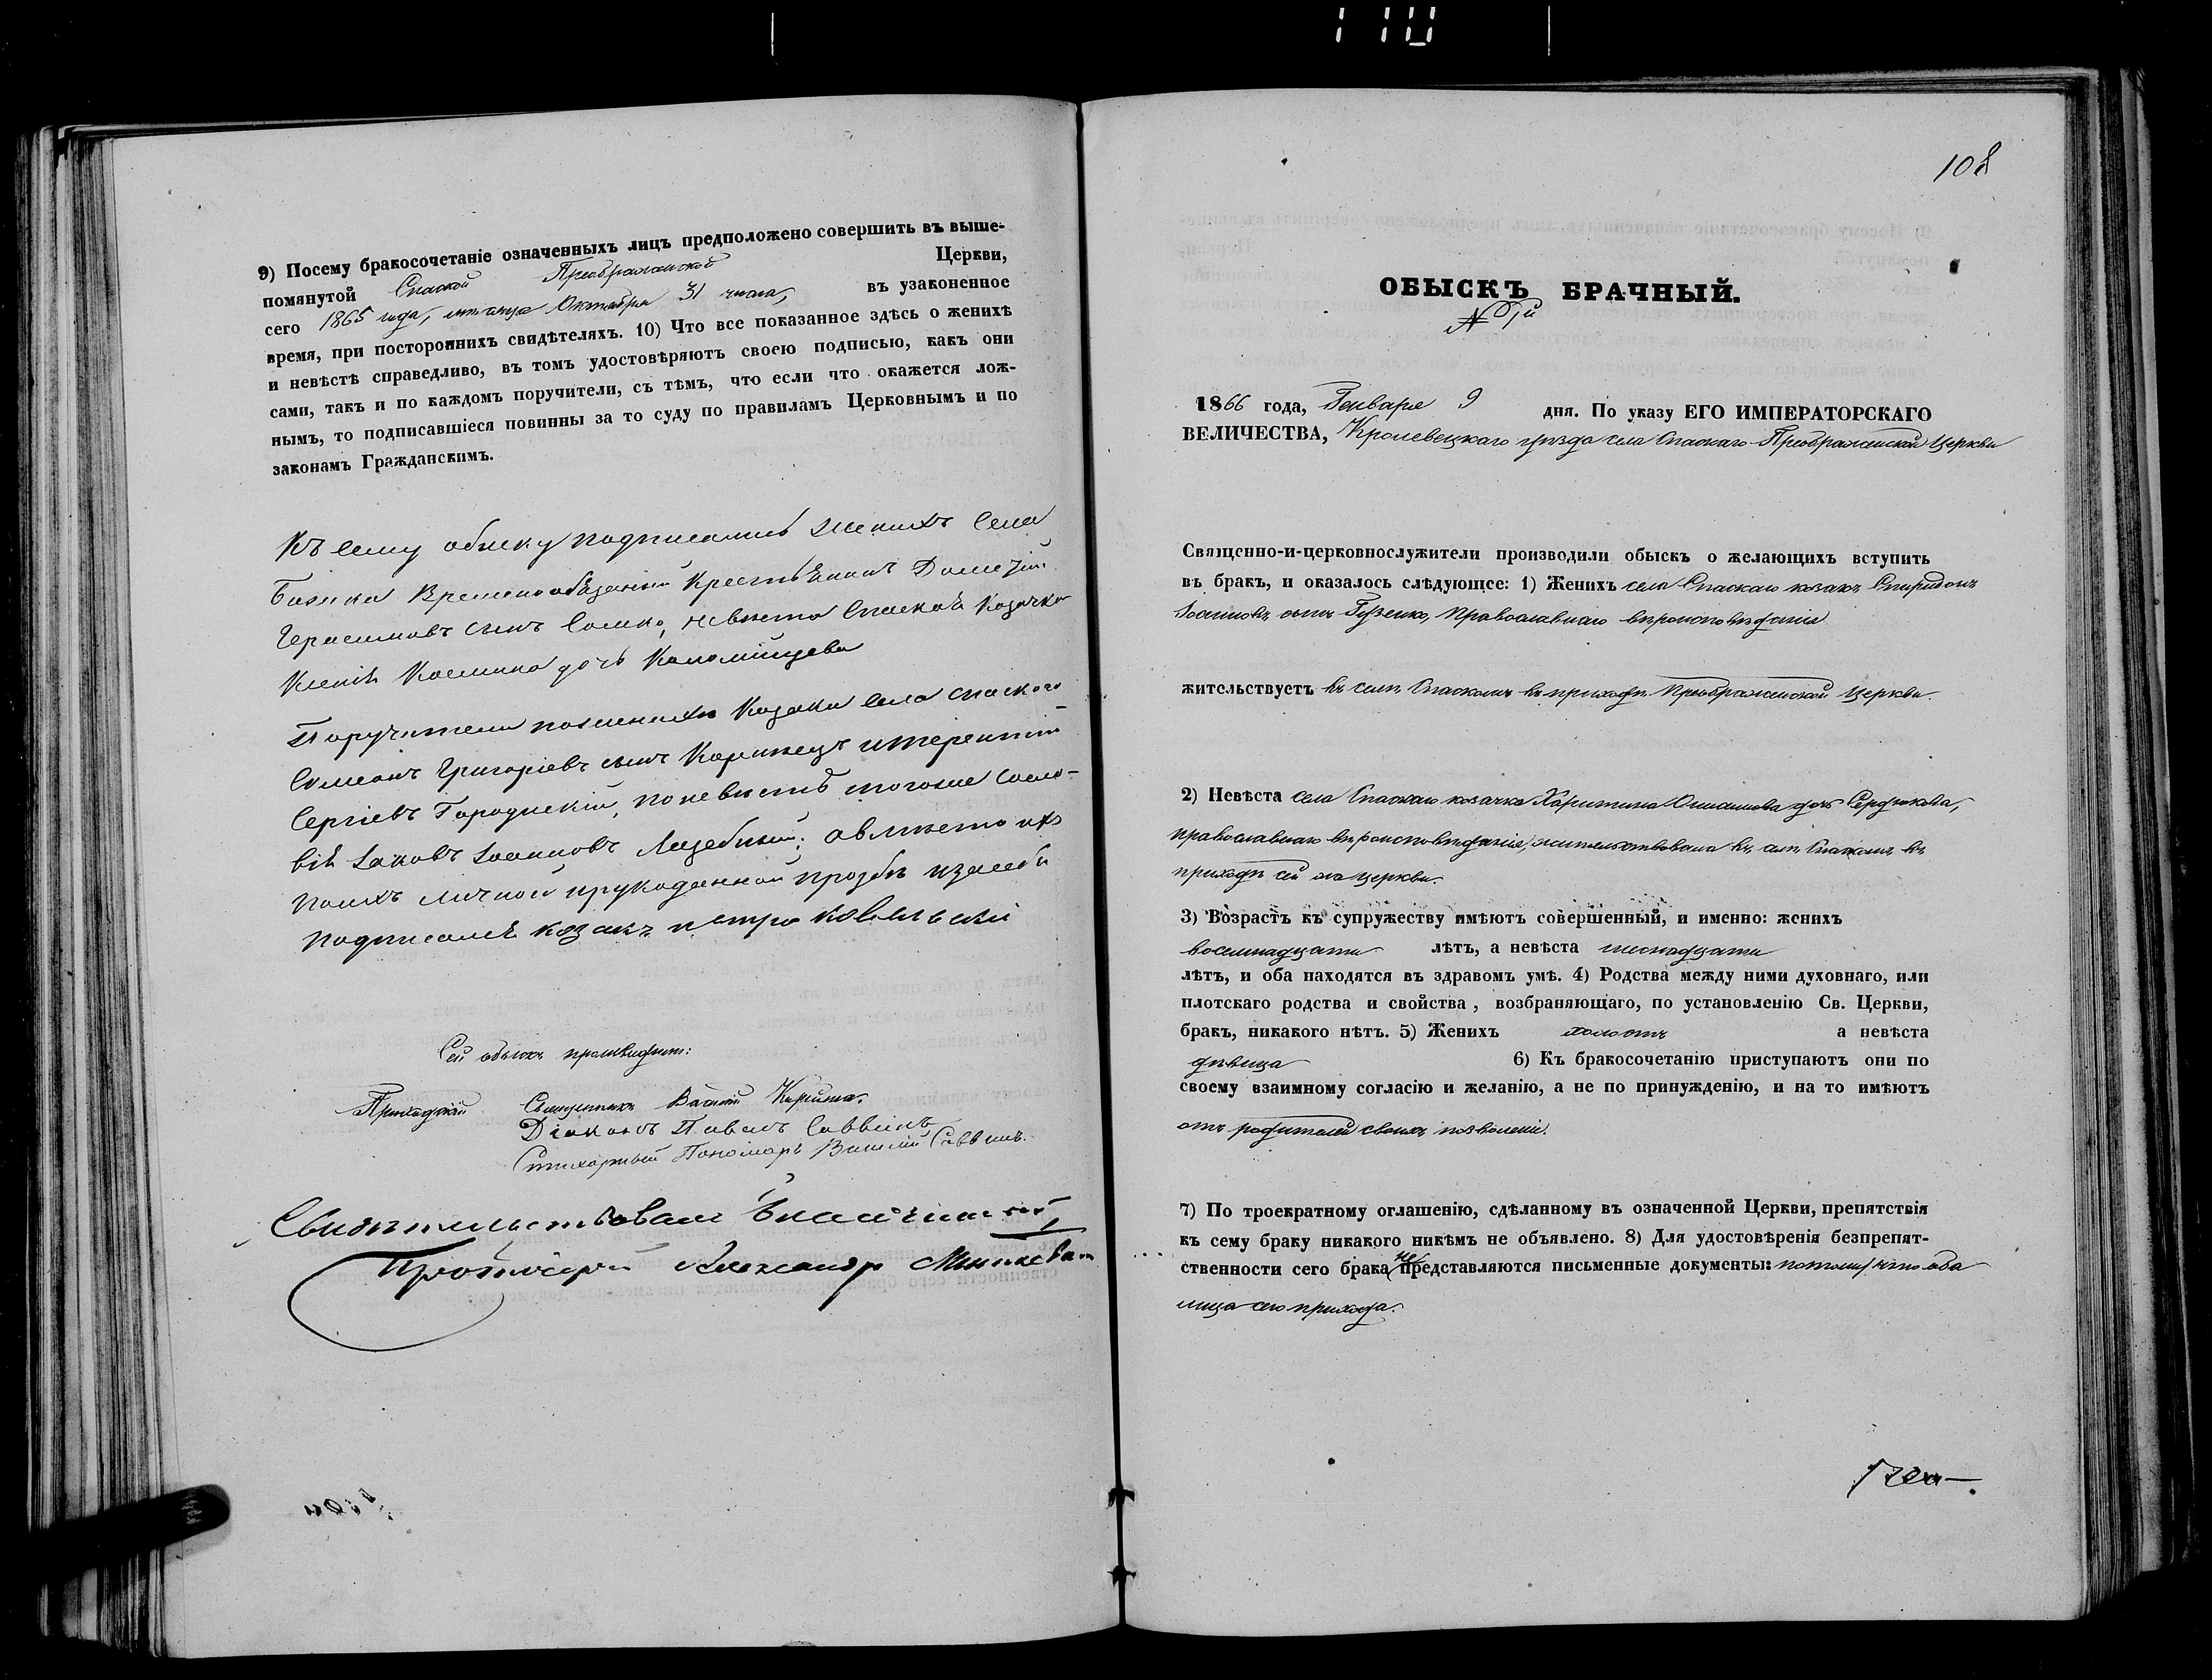 9) Посему бракосочетаніе означенныхъ лицъ предположено совершить въ выше-
помянутой Спаской Преображенской Церкви,
сего 1865 года, мѣсяца Октября 31 числа, въ узаконенное
время, при постороннихъ свидѣтеляхъ. 10) Что все показанное здѣсь о женихѣ
и невѣстѣ справедливо, въ томъ удостовѣряютъ своею подписью, какъ они
сами, такъ и по каждомъ поручители, съ тѣмъ, что если что окажется лож-
нымъ, то подписавшіеся повинны за то суду по правиламъ Церковнымъ и по
законамъ Гражданскимъ.
Къ сему обыску подписались женихъ Села
Временнообязаный Крестьянинъ
Герасимовъ сынъ Сошко, невѣста Спаская Козачка
Ксенія Косьмина дочь Коломійцева
Поручители пожениху Козаки Села Спаского
Симеонъ Григоріевъ сынъ итерентій
Сергіевъ Городнскій, поневѣстѣ тогоже Сосло-
вія Іаковъ Іоанновъ авмѣсто ихъ
поихъ личной ирукоданной прозбѣ изасебя
подписалъ козакъ петро
Сей обыскъ производили:
Приходскій Священникъ Василій
Діаконъ Павелъ Саввинъ
Стихарный Пономарь Василій Саввинъ.
Свидѣтельствовалъ Благочинный
Протоіерей Александр
108
ОБЫСКЪ БРАЧНЫЙ.
№
1866 года, Генваря 9 дня. По указу ЕГО ИМПЕРАТОРСКАГО
ВЕЛИЧЕСТВА, Кролевецкаго уѣзда села Спаскаго Преображенской Церкви
Священно-и-церковнослужители производили обыскъ о желающихъ вступить
въ бракъ, и оказалось слѣдующее: 1) Женихъ села Спаскаго козакъ Спиридонъ
Іоанновъ сынъ Гузенко, Православнаго вѣроисповѣданія
жительствуетъ въ селѣ Спаскомъ въ приходѣ Преображенской Церкви.
2) Невѣста села Спаскаго козачка Харитина дочь Сердюкова,
православнаго вѣроисповѣданія, жительствовала въ селѣ Спаскомъ въ
приходѣ сей же церкви.
3) Возрастъ къ супружеству имѣютъ совершенный, и именно: женихъ
восемнадцати лѣтъ, а невѣста шеснадцати
лѣтъ, и оба находятся въ здравомъ умѣ. 4) Родства между ними духовнаго, или
плотскаго родства и свойства, возбраняющаго, по установленію Св. Церкви,
бракъ, никакого нѣтъ. 5) Женихъ холостъ а невѣста
дѣвица 6) Къ бракосочетанію приступаютъ они по
своему взаимному согласію и желанію, а не по принужденію, и на то имѣютъ
отъ родителей своихъ позволеніе.
7) По троекратному оглашенію, сдѣланному въ означенной Церкви, препятствія
къ сему браку никакого никѣмъ не объявлено. 8) Для удостовѣренія безпрепят-
ственности сего брака не представляются письменные документы: потому, что оба
лица сего прихода.